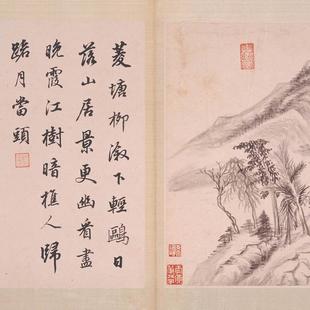 菱塘柳漵下輕鷗日
落山居景更幽看盡
晚霞江樹暗樵人歸
踏月當頭